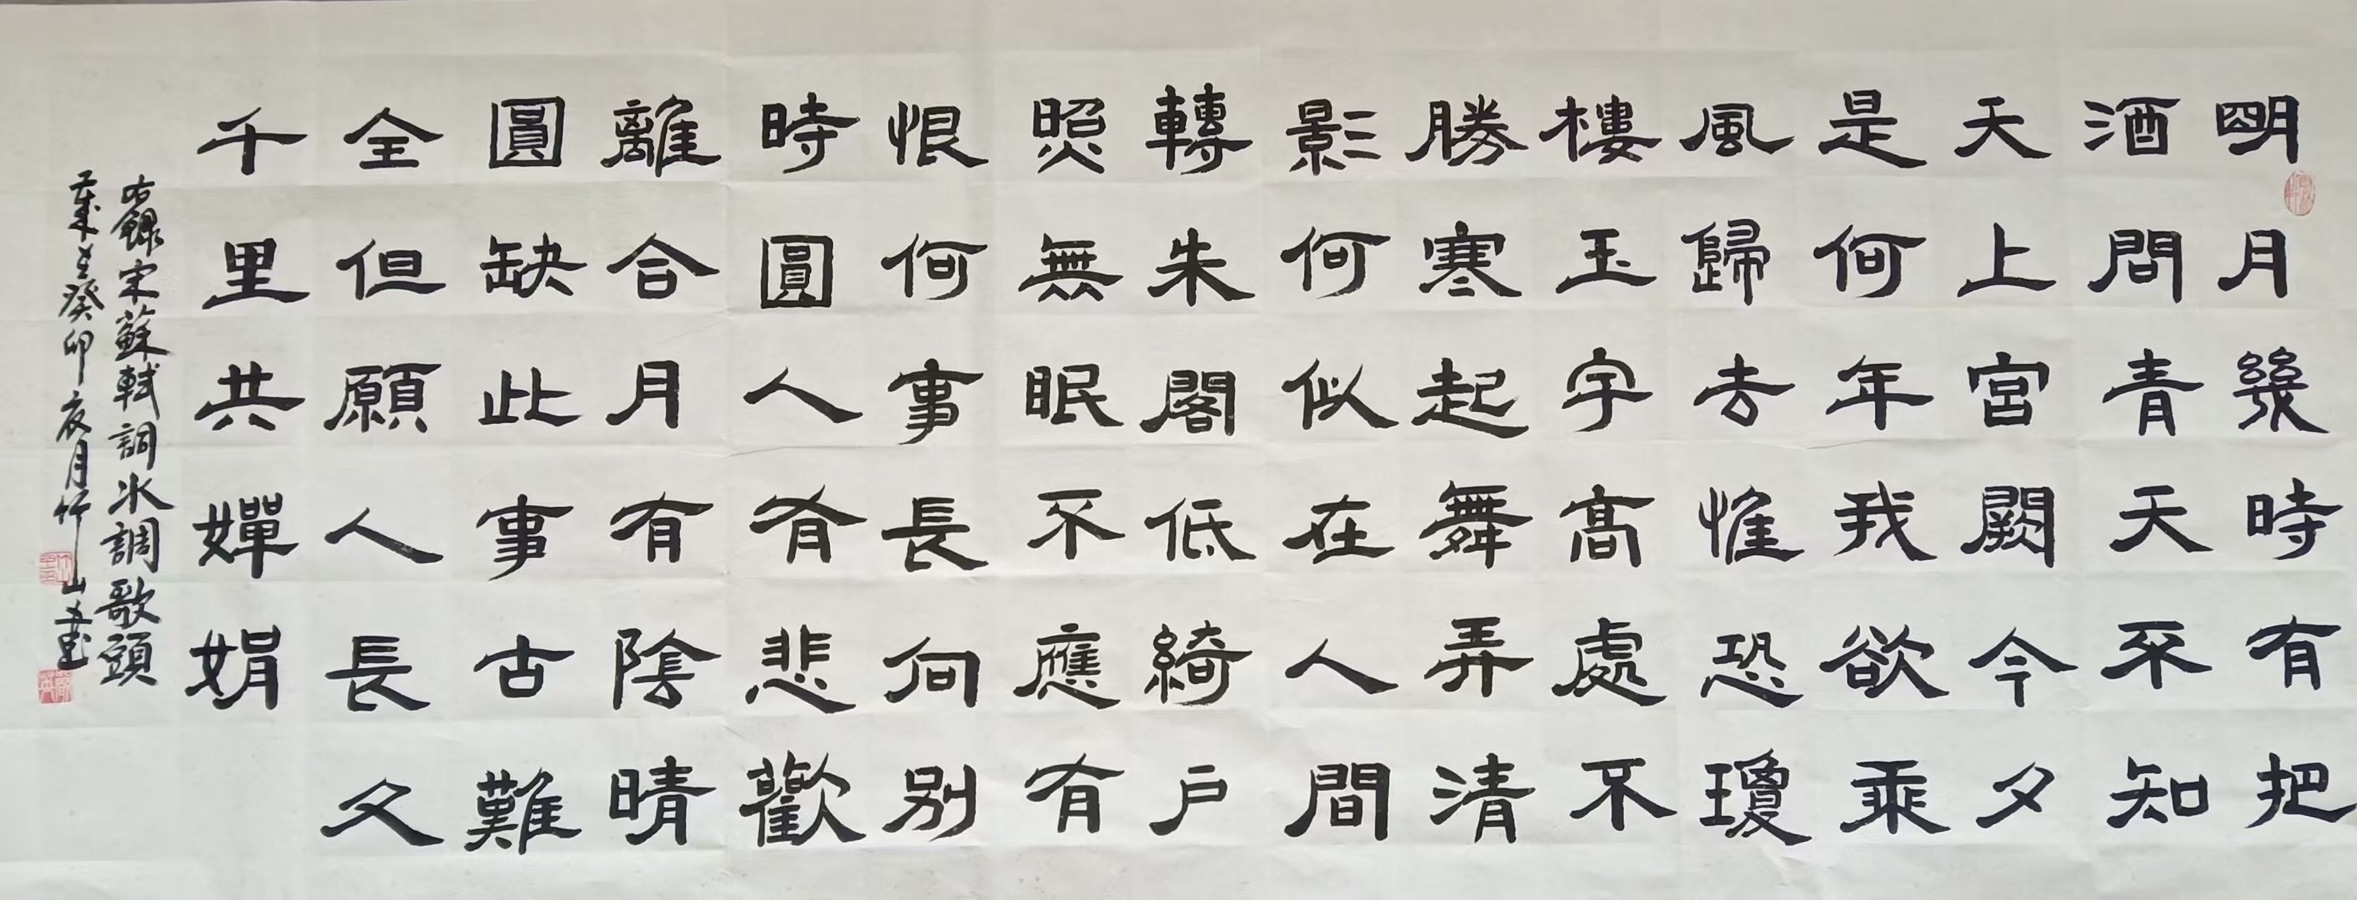 明月幾時有把
酒問青天不知
天上宮闕今夕
是何年我欲乘
風歸去惟恐瓊
樓玉宇高處不
勝寒起舞弄清
影何似在人間
轉朱閣低綺户
照無眠不應有
恨何事長向别
時圓人有悲歡
離合月有陰晴
圓缺此事古難
全但願人長久
千里共嬋娟
右錄宋蘇軾詞水調歌頭
癸卯夜月竹山